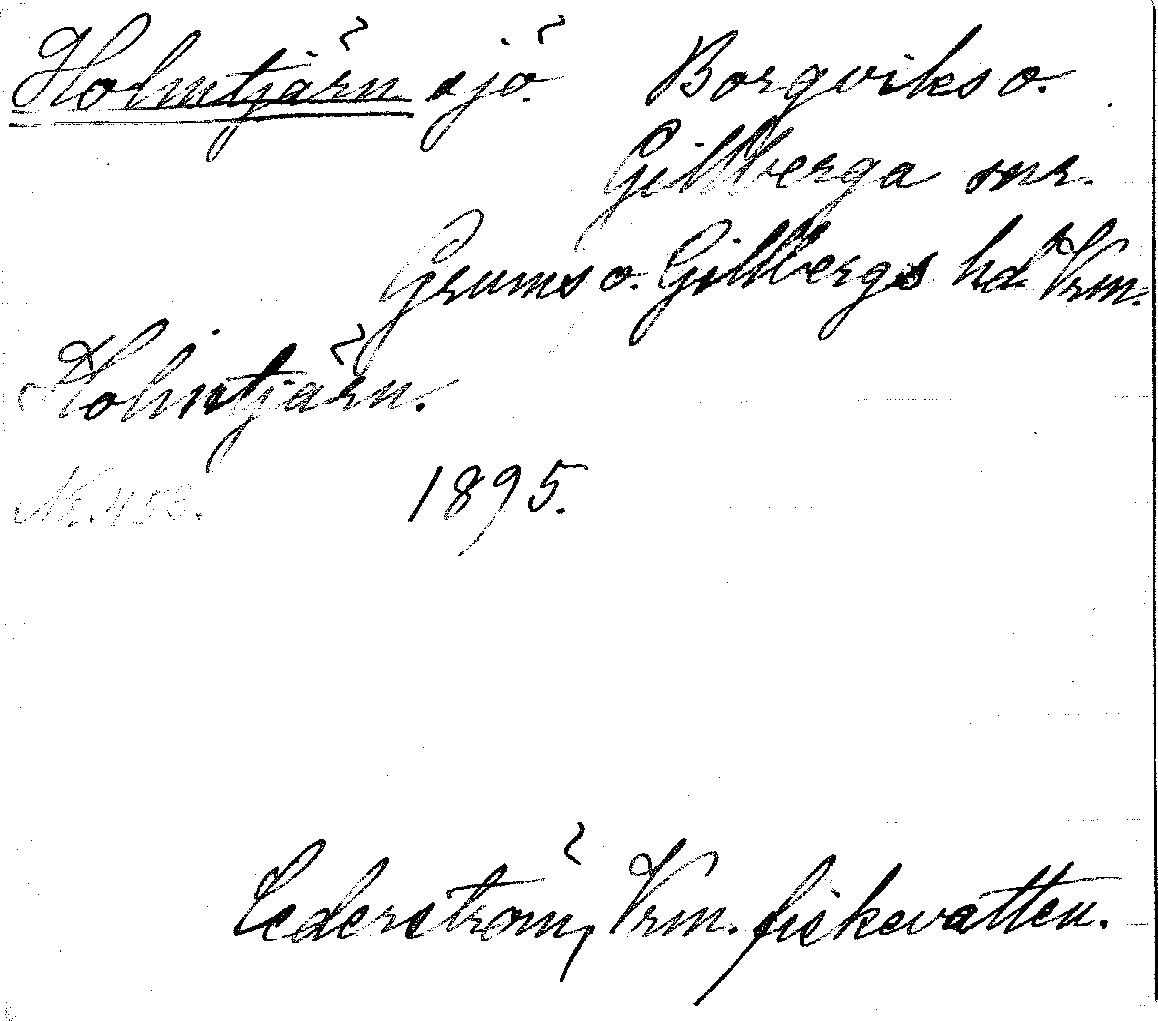 Holmtjärn sjö Borgviks o.
Gillberga snr.
Grums o. Gillbergs hd Vrm.
Holmtjärn.
Nr. 453. 1895.
Cederström, Vrm. fiskevatten.